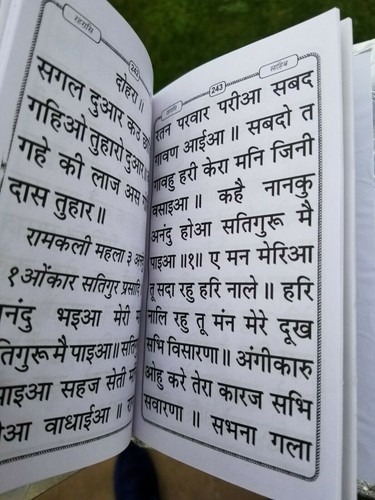 रहरासि
242
दोहरा॥
सगल दुआर कउ
गहिओ तुहारो दुआर॥
गहे की लाज अस
दास तुहार॥
रामकली महला ३
१ओंकार सतिगुर प्रसादि
भइआ मेरी
मै पाइआ॥
सहज सेती
वाधाईआ॥
243
साहिब
रतन परवार परीआ सबद
गावण आईआ॥ सबदो त
गावहु हरी केरा मनि जिनी
वसाइआ॥ कहै नानकु
अनंदु होआ सतिगुरू मै
पाइआ॥१॥ ए मन मेरिआ
तू सदा रहु हरि नाले॥ हरि
नालि रहु तू मंन मेरे दूख
सभि विसारणा॥ अंगीकारु
ओहु करे तेरा कारज सभि
सवारणा॥ सभना गला